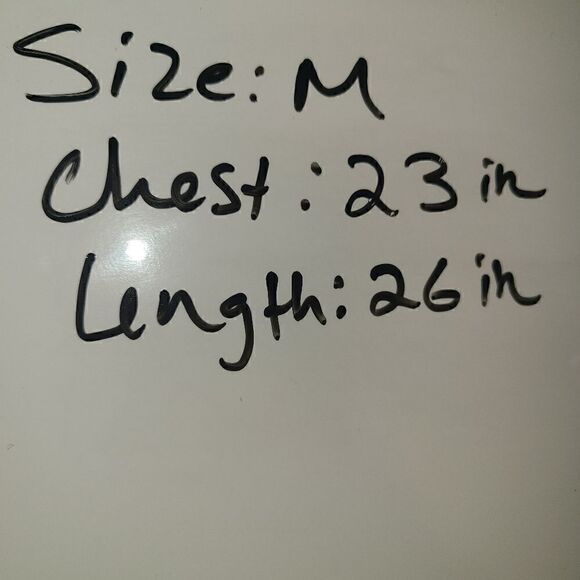 Size: M
Chest: 23 in
Length: 26 in